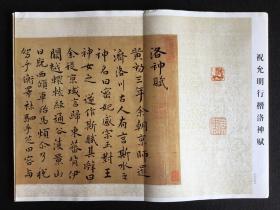 祝允明行楷洛神赋
洛神賦
黄初三年余朝京師還
濟洛川古人有言斯水之
神名曰宓妃感宋玉對王
神女之遂作斯賦其辭曰
余從京域言歸東藩背伊
闕越轘轅經通谷陵景山
日既西傾車殆馬煩尔乃税
駕乎蘅皋容與